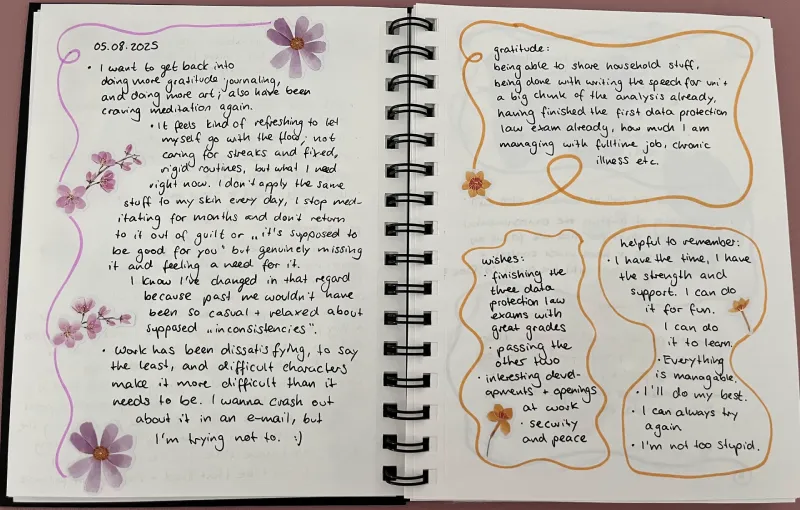 05.08.2025
• I want to get back into
doing more gratitude journaling,
and doing more art; also have been
craving meditation again.
• It feels kind of refreshing to let
myself go with the flow, not
caring for streaks and fixed,
rigid routines, but what I need
right now. I don't apply the same
stuff to my skin every day, I stop med-
itating for months and don't return
to it out of guilt or „it's supposed to
be good for you" but genuinely missing
it and feeling a need for it.
I know I've changed in that regard
because past me wouldn't have
been so casual + relaxed about
supposed „inconsistencies".
• Work has been dissatisfying, to say
the least, and difficult characters
make it more difficult than it
needs to be. I wanna crash out
about it in an e-mail, but
I'm trying not to. :)
gratitude:
being able to share household stuff,
being done with writing the speech for uni +
a big chunk of the analysis already,
having finished the first data protection
law exam already, how much I am
managing with fulltime job, chronic
illness etc.
wishes:
• finishing the
three data
protection law
exams with
great grades
• passing the
other two
• interesting devel-
opments + openings
at work
• security
and peace
helpful to remember:
• I have the time, I have
the strength and
support. I can do
it for fun.
I can do
it to learn.
• Everything
is managable.
• I'll do my best.
• I can always try
again.
• I'm not too stupid.